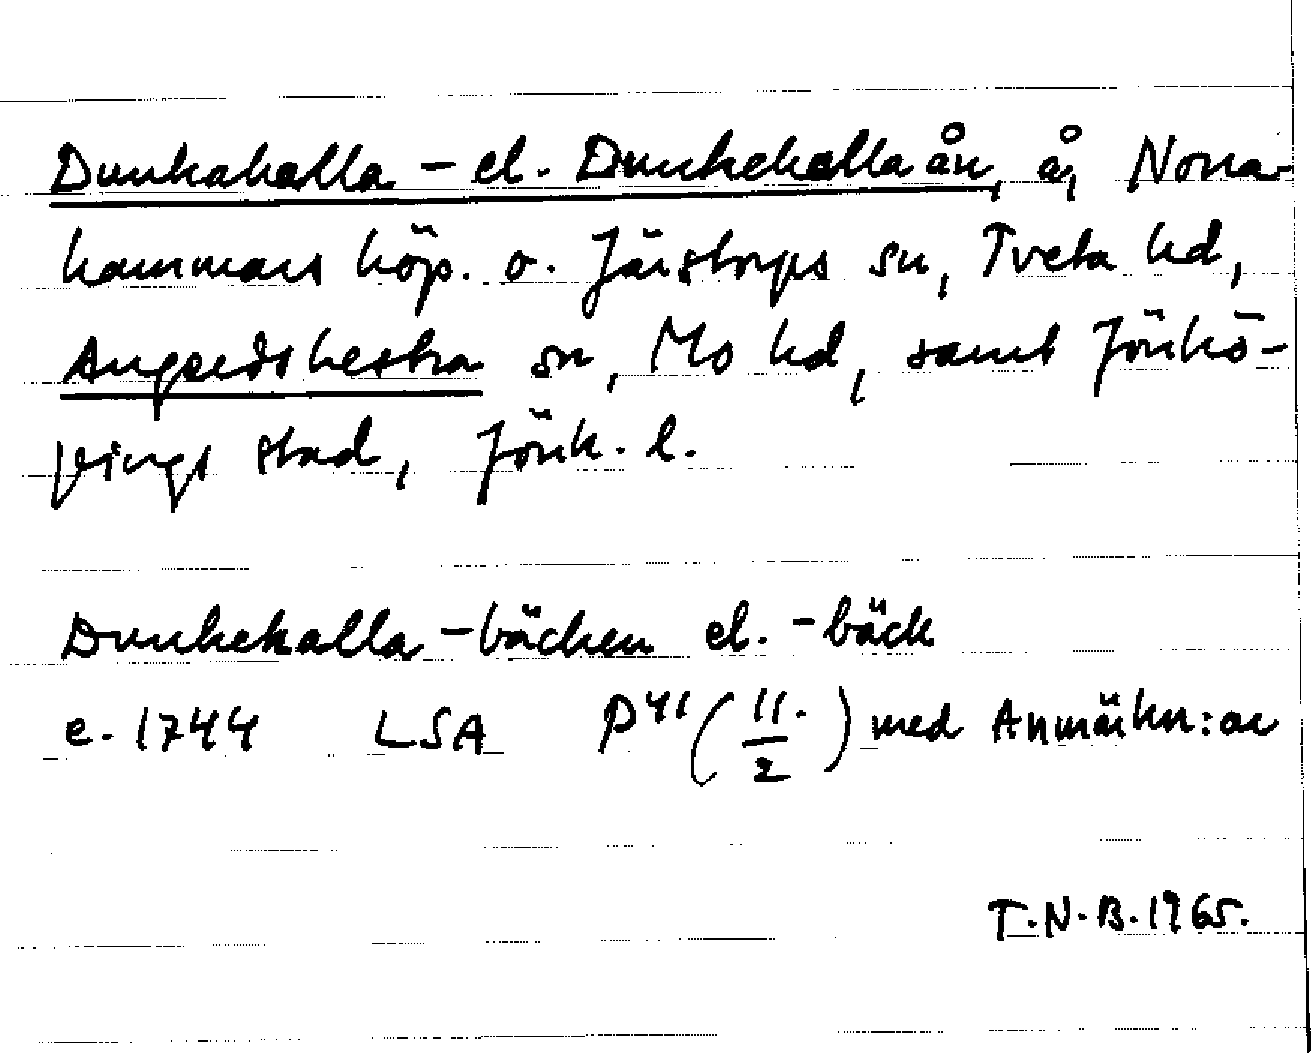 Dunkahalla- el. Dunkehallaån, å, Norra-
hammars köp. o. Järstorps sn, Tveta hd,
Angerdshestra sn, Mo hd, samt Jönkö-
pings stad, Jönk. l.
Dunkehalla-bäcken el. -bäck
e. 1744 LSA P41 (11./2) med Anmärkn:ar
T.N.B. 1965.